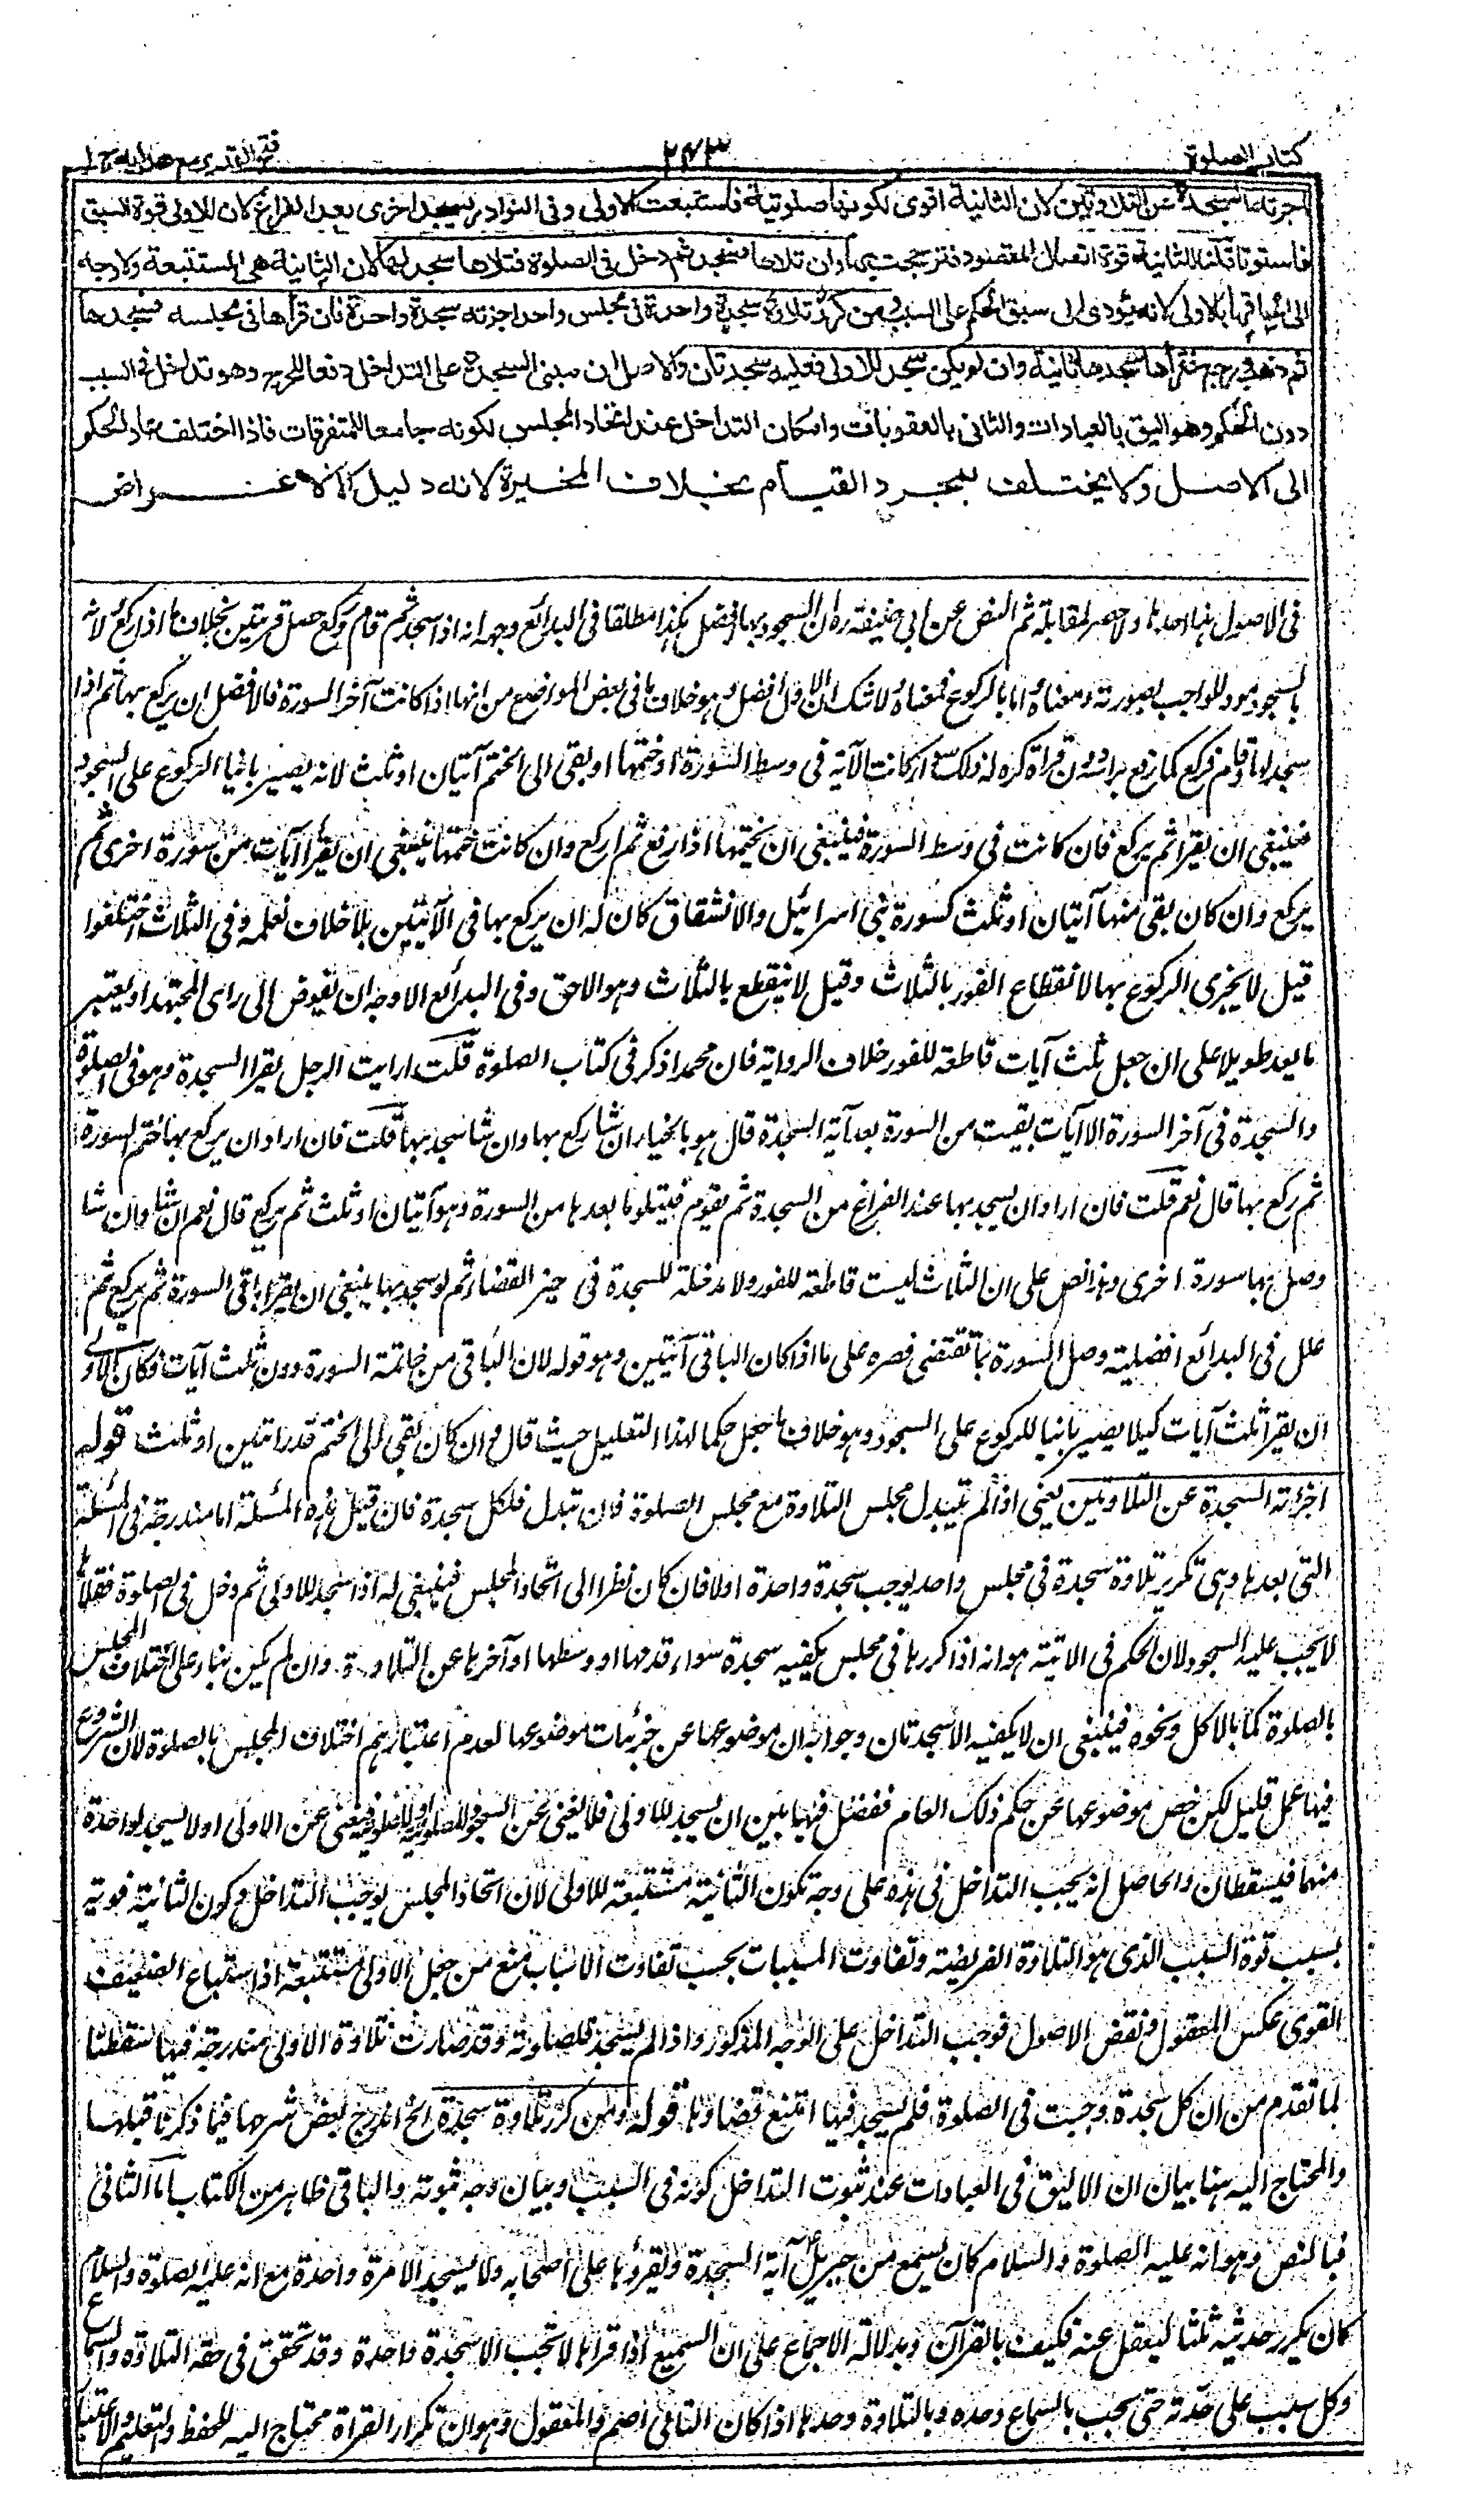 كتاب الصلوة
٢٤٣
فتح القدير مع هدايه ج ١
اجزته السجدة عن التلاوتين لان الثانية اقوى لكونها صلوتية فاستتبعت الاولى وفى النوادر يسجد اخرى بعد الفراغ لان للاولى قوة السبق
فاستوتا قلنا للثانية قوة اتصال المقصود فترجحت بها وان تلاها فسجد ثم دخل فى الصلوة فتلاها سجد لها لان الثانية هى المستتبعة ولا وجه
الى الحاقها بالاولى لانه يؤدى الى سبق الحكم على السبب ومن كرر تلاوة سجدة واحدة فى مجلس واحد اجزته سجدة واحدة فان قرأها فى مجلسه فسجدها
ثم ذهب ورجع فقرأها سجدها ثانية وان لم يكن سجد للاولى فعليه سجدتان والاصل ان مبنى السجدة على التداخل دفعا للحرج وهو تداخل فى السبب
دون الحكم وهو اليق بالعبادات والثانى بالعقوبات وامكان التداخل عند اتحاد المجلس لكونه جامعا للمتفرقات فاذا اختلف عاد الحكم
الى الاصل ولا يختلف بمجرد القيام بخلاف المخيرة لانه دليل الاعراض
فى الاصول هنا احدها ولا حصر لمقابلة ثم النص عن ابى حنيفة ره ان السجود بها افضل هكذا مطلقا فى البدائع وجهه انه اذا سجد ثم قام وركع حصل قربتين بخلاف ما اذا ركع لانه
بالسجود مود للواجب بصورته ومعناه واما بالركوع فبمعناه ولا شك ان الاول افضل وهو خلاف ما فى بعض المواضع من انها اذا كانت آخر السورة فالافضل ان يركع بها ثم اذا
سجد لها وقام فركع كما رفع راسه دون قراءة كره له ذلك سواء كانت الآية فى وسط السورة او ختمها او بقى الى الختم آيتان او ثلث لانه يصير بانيا الركوع على السجود
فينبغى ان يقرا ثم يركع فان كانت فى وسط السورة فينبغى ان يختمها اذا رفع ثم يركع وان كانت ختمها ينبغى ان يقرأ آيات من سورة اخرى ثم
يركع وان كان بقى منها آيتان او ثلث كسورة بنى اسرائيل والانشقاق كان له ان يركع بها فى الآيتين بلا خلاف نعلمه وفى الثلاث اختلفوا
قيل لا يجزى الركوع بها لانقطاع الفور بالثلاث وقيل لا ينقطع بالثلاث وهو الاحق وفى البدائع الاوجه ان يفوض الى راى المجتهد او يعتبر
ما يعد طويلا على ان جعل ثلث آيات قاطعة للفور خلاف الرواية فان محمدا ذكر فى كتاب الصلوة قلت ارايت الرجل يقرا السجدة وهو فى الصلوة
والسجدة فى آخر السورة الا آيات بقيت من السورة بعد آية السجدة قال هو بالخيار ان شا ركع بها وان شا سجد بها قلت فان اراد ان يركع بها ختم السورة
ثم ركع بها قال نعم قلت فان اراد ان يسجد بها عند الفراغ من السجدة ثم يقوم فيتلو ما بعدها من السورة وهو آيتان او ثلث ثم يركع قال نعم ان شا وان شا
وصل بها سورة اخرى وهذا نص على ان الثلاث ليست قاطعة للفور ولا مدخلة للسجدة فى حيز القضاء ثم لو سجد بها ينبغى ان يقرا باقى السورة ثم يركع ثم
علل فى البدائع افضلية وصل السورة بما تقتضى قصره على ما اذا كان الباقى آيتين وهو قوله لان الباقى من خاتمة السورة دون ثلث آيات فكان الاولى
ان يقرأ ثلث آيات كيلا يصير بانيا للركوع على السجود وهو خلاف ما جعل حكما لهذا التعليل حيث قال وان كان بقى الى الختم قدر آيتين او ثلث قوله
اجزأته السجدة عن التلاوتين يعنى اذا لم يتبدل مجلس التلاوة مع مجلس الصلوة فان تبدل فلكل سجدة فان قيل هذه المسئلة اما مندرجة فى المسئلة
التى بعدها وهى تكرير تلاوة سجدة فى مجلس واحد يوجب سجدة واحدة اولا فان كان نظرا الى اتحاد المجلس فينبغى له اذا سجد للاولى ثم دخل فى الصلوة فتلاها
لا يجب عليه السجود لان الحكم فى الاتية هو انه اذا كررها فى مجلس يكفيه سجدة سواء قدمها او وسطها او آخرها عن التلاوة وان لم يكن بناء على اختلاف المجلس
بالصلوة كما بالاكل ونحوه فينبغى ان لا يكفيه الا سجدتان وجوابه ان موضوعها عن جزئيات موضوعها لعدم اعتبارهم اختلاف المجلس بالصلوة لان الشروع
فيها عمل قليل لكن خص موضوعها عن حكم ذلك العام ففصل فيها بين ان يسجد للاولى فلا يغنى عن السجود للصلوتية او للصلوتية فيغنى عن الاولى او لا يسجد لواحدة
منهما فيسقطان والحاصل انه يجب التداخل فى هذه على وجه تكون الثانية مستتبعة للاولى لان اتحاد المجلس يوجب التداخل وكون الثانية قوية
بسبب قوة السبب الذى هو التلاوة الفريضة وتفاوت المسببات بحسب تفاوت الاسباب منع من جعل الاولى مستتبعة اذ استتباع الضعيف
القوى عكس المعقول ونقض الاصول فوجب التداخل على الوجه المذكور واذا لم يسجد للصلوتية وقد صارت تلاوة الاولى مندرجة فيها سقطتا
لما تقدم من ان كل سجدة وجبت فى الصلوة فلم يسجد فيها امتنع قضاؤها قوله ومن كرر تلاوة سجدة الخ اندرج بعض شرحها فيما ذكرنا قبلها
والمحتاج اليه هنا بيان ان الاليق فى العبادات عند ثبوت التداخل كونه فى السبب وبيان وجه ثبوته والباقى ظاهر من الكتاب اما الثانى
فبالنص وهو انه عليه الصلوة والسلام كان يسمع من جبريل آية السجدة ويقرؤها على اصحابه ولا يسجد الا مرة واحدة مع انه عليه الصلوة والسلام
كان يكرر حديثه ثلثا ليعقل عنه فكيف بالقرآن وبدلالة الاجماع على ان السميع اذا قراها لا تجب الا سجدة واحدة وقد تحقق فى حقه التلاوة والسماع
وكل سبب على حدته حتى يجب بالسماع وحده وبالتلاوة وحدها اذا كان التالى اصم والمعقول وهو ان تكرار القراة محتاج اليه للحفظ والتعليم والاعتبار